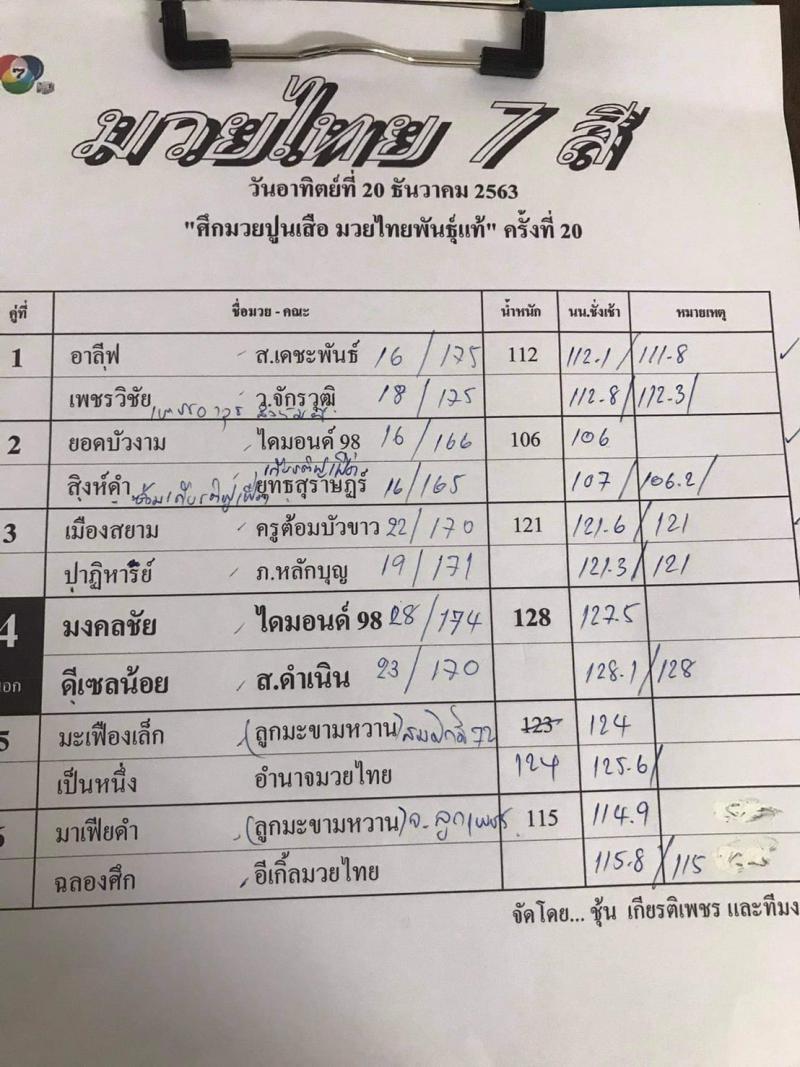 7
มวยไทย 7 สี
วันอาทิตย์ที่ 20 ธันวาคม 2563
"ศึกมวยปูนเสือ มวยไทยพันธุ์แท้" ครั้งที่ 20
คู่ที่ ชื่อมวย - คณะ น้ำหนัก นน.ชั่งเช้า หมายเหตุ
1 อาลีฟ ส.เดชะพันธ์ 16 / 175 112 112.1 / 111.8
เพชรวิชัย ว.จักรวุฒิ 18 / 175 112.8 / 112.3 /
2 ยอดบัวงาม ไดมอนด์ 98 16 / 166 106 106
สิงห์คำ ยุทธสุราษฎร์ 16 / 165 107 / 106.2 /
3 เมืองสยาม ครูต้อมบัวขาว 22 / 170 121 121.6 / 121
ปาฏิหาริย์ ภ.หลักบุญ 19 / 171 121.3 / 121
4 มงคลชัย ไดมอนด์ 98 28 / 174 128 127.5
ดีเซลน้อย ส.ดำเนิน 23 / 170 128.1 / 128
5 มะเฟืองเล็ก (ลูกมะขามหวาน) 72 123 124
เป็นหนึ่ง อำนาจมวยไทย 124 125.6 /
มาเฟียดำ (ลูกมะขามหวาน) จ.ลูกเพชร 115 114.9
ฉลองศึก อีเกิ้ลมวยไทย 115.8 / 115
จัดโดย... ชุ้น เกียรติเพชร และทีมง